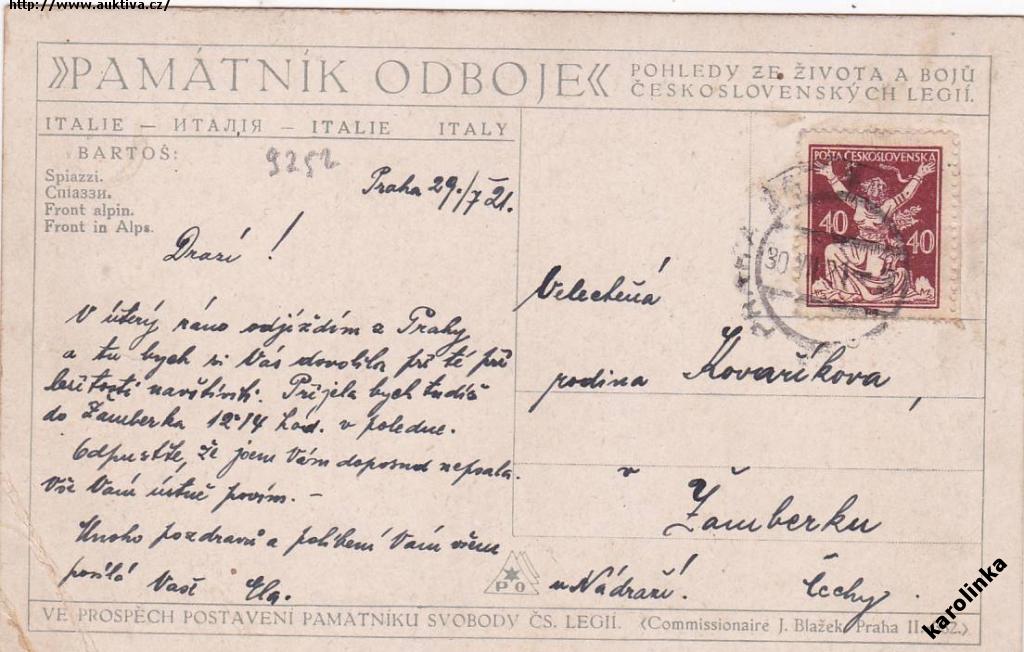 http://www.auktiva.cz/
»PAMÁTNÍK ODBOJE«
POHLEDY ZE ŽIVOTA A BOJŮ
ČESKOSLOVENSKÝCH LEGIÍ.
ITALIE — ИТАЛІЯ — ITALIE ITALY
BARTOŠ:
Spiazzi.
Спіаззи.
Front alpin.
Front in Alps.
9252
Praha 29./7 21.
Drazí!
V úterý ráno odjíždím z Prahy
a tu bych si Vás dovolila při té pří
ležitosti navštíviti. Přijela bych tudíž
do Žamberka 12·14 hod. v poledne.
Odpusťte, že jsem Vám doposud nepsala.
Vše Vám ústně povím. –
Mnoho pozdravů a políbení Vám všem
posílá Vaše Ela.
POŠTA ČESKOSLOVENSKÁ
40 40
Velectěná
rodina Kovaříkova,
v Žamberku
u Nádraží. Čechy.
PO
VE PROSPĚCH POSTAVENÍ PAMÁTNÍKU SVOBODY ČS. LEGIÍ.
(Commissionaire J. Blažek, Praha II.
karolinka